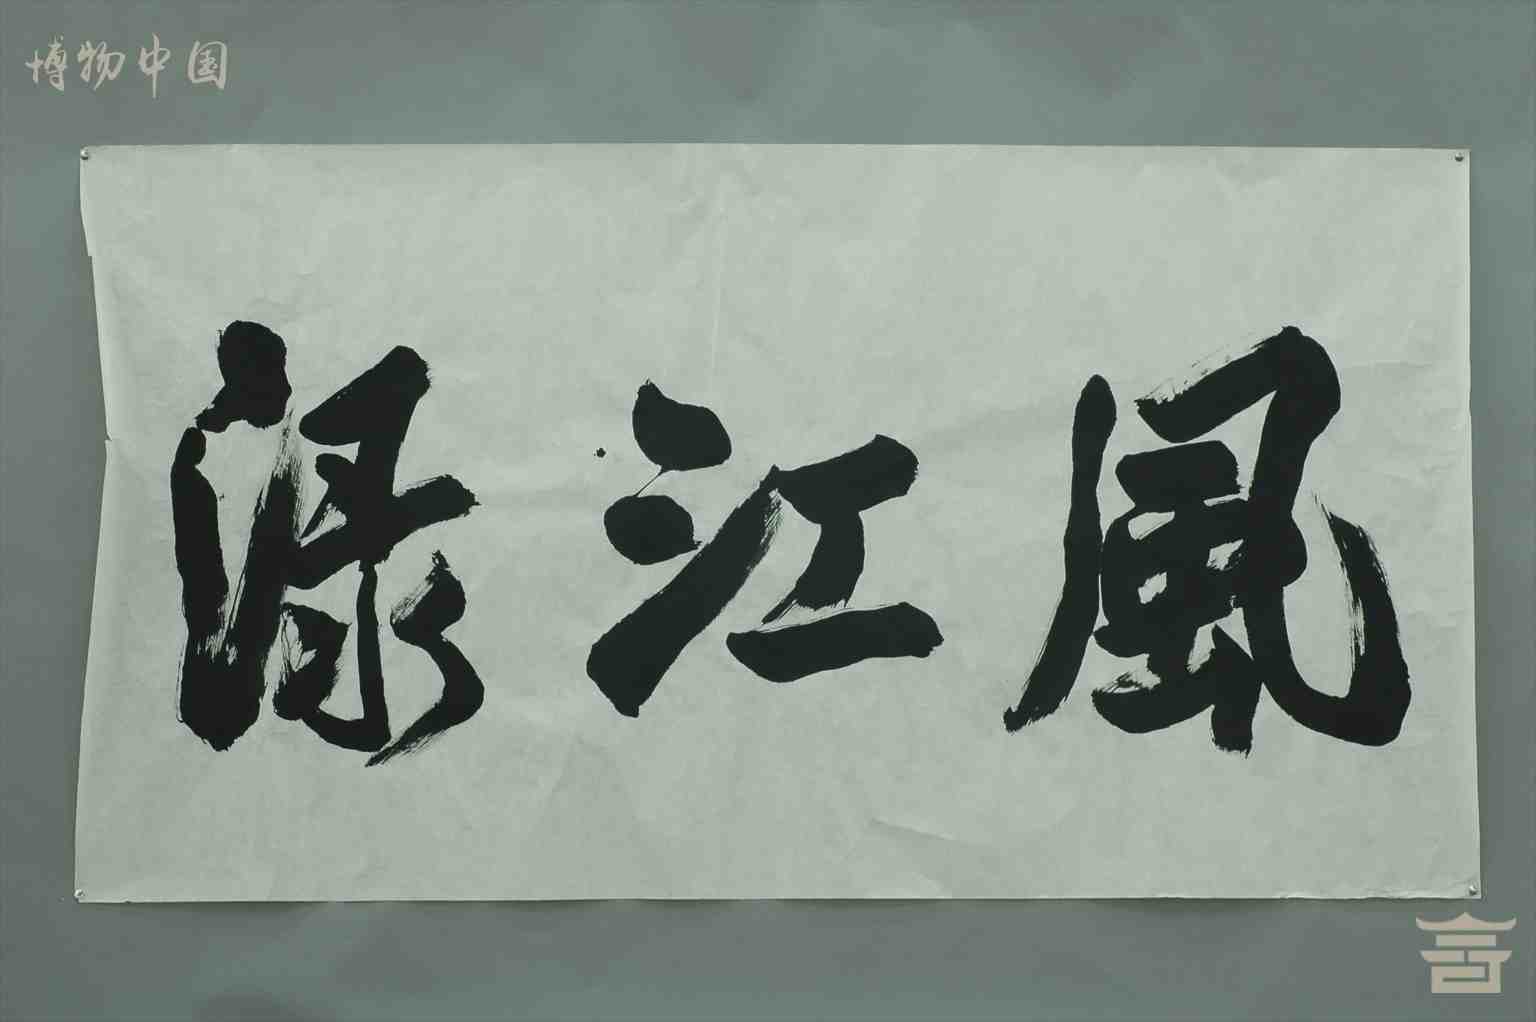 博物中国
渌江風